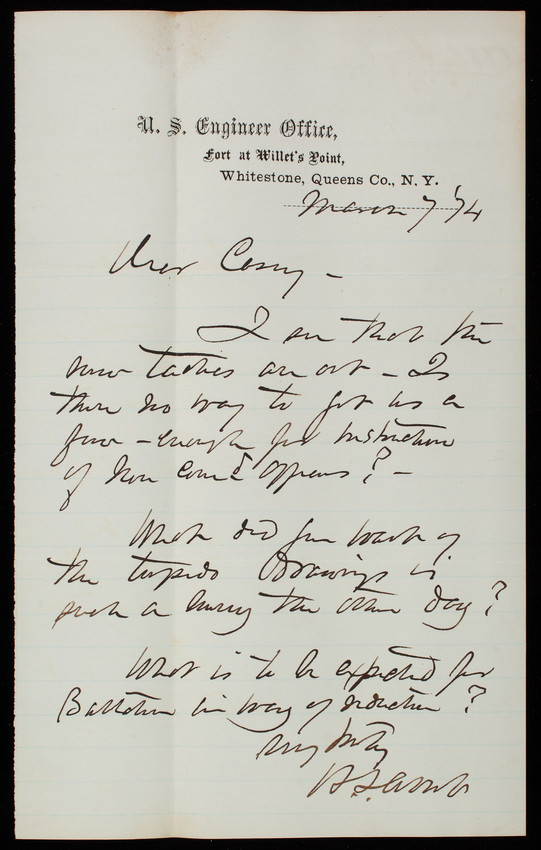 U. S. Engineer Office,
Fort at Willet's Point,
Whitestone, Queens Co., N. Y.
March 7 '74
Dear Casey -
I see that the
new tactics are out - Is
there no way to get us a
few - enough for instruction
of Non Comd officers? -
What did you want of
the torpedo drawings in
such a hurry the other day?
What is to be expected for
Battalion in way of reduction?
Very truly
H L Abbot